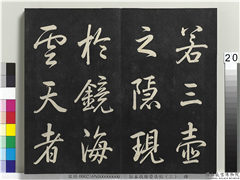 若三壺
之隱現
於鏡海
雲天者
20